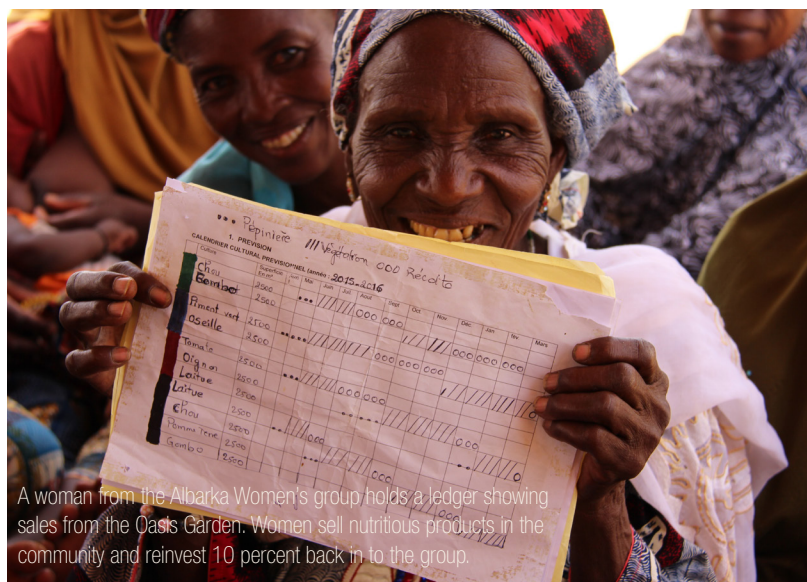 ••• Pépinière /// Végétation 000 Récolte
1. PREVISION
CALENDRIER CULTURAL PREVISIONNEL (année: 2015-2016
Culture Superficie Avr Mai Juin Juil Aout Sept Oct Nov Dec Jan fev Mars
Chou 2500
Gombo 2500
Piment vert 2500
Oseille 2500
Tomate 2500
Oignon 2500
Laitue 2500
Laitue 2500
Chou 2500
Pomme Terre 2500
Gombo 2500
A woman from the Albarka Women's group holds a ledger showing
sales from the Oasis Garden. Women sell nutritious products in the
community and reinvest 10 percent back in to the group.